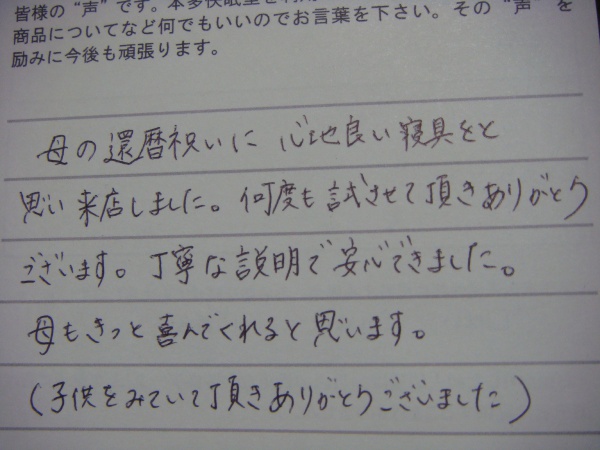 皆様の“声”です。本多快眠室を利用
商品についてなど何でもいいのでお言葉を下さい。その“声”を
励みに今後も頑張ります。
母の還暦祝いに心地良い寝具をと
思い来店しました。何度も試させて頂きありがとう
ございます。丁寧な説明で安心できました。
母もきっと喜んでくれると思います。
（子供をみていて頂きありがとうございました）